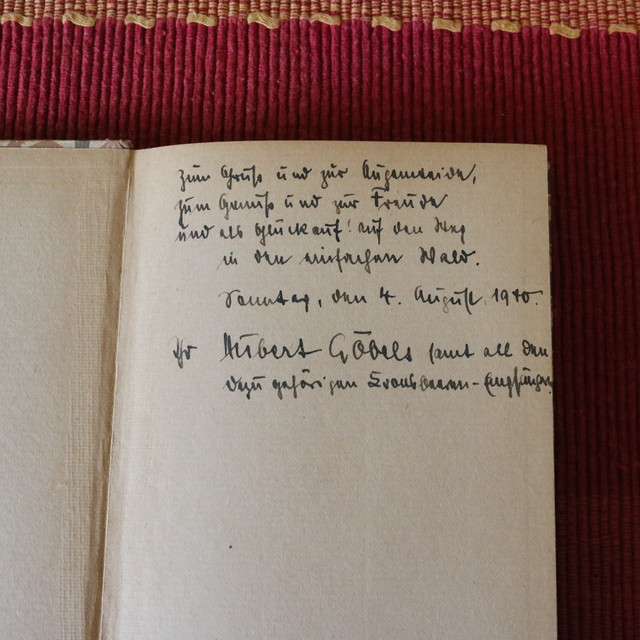 zum Gruß und zur Augenweide,
zum Genuß und zur Freude
und als Glückauf! auf den Weg
in den einfachen Wald.
Sonntag, den 4. August 1940.
Ihr Hubert Göbels samt all den
dazu gehörigen -Empfängern